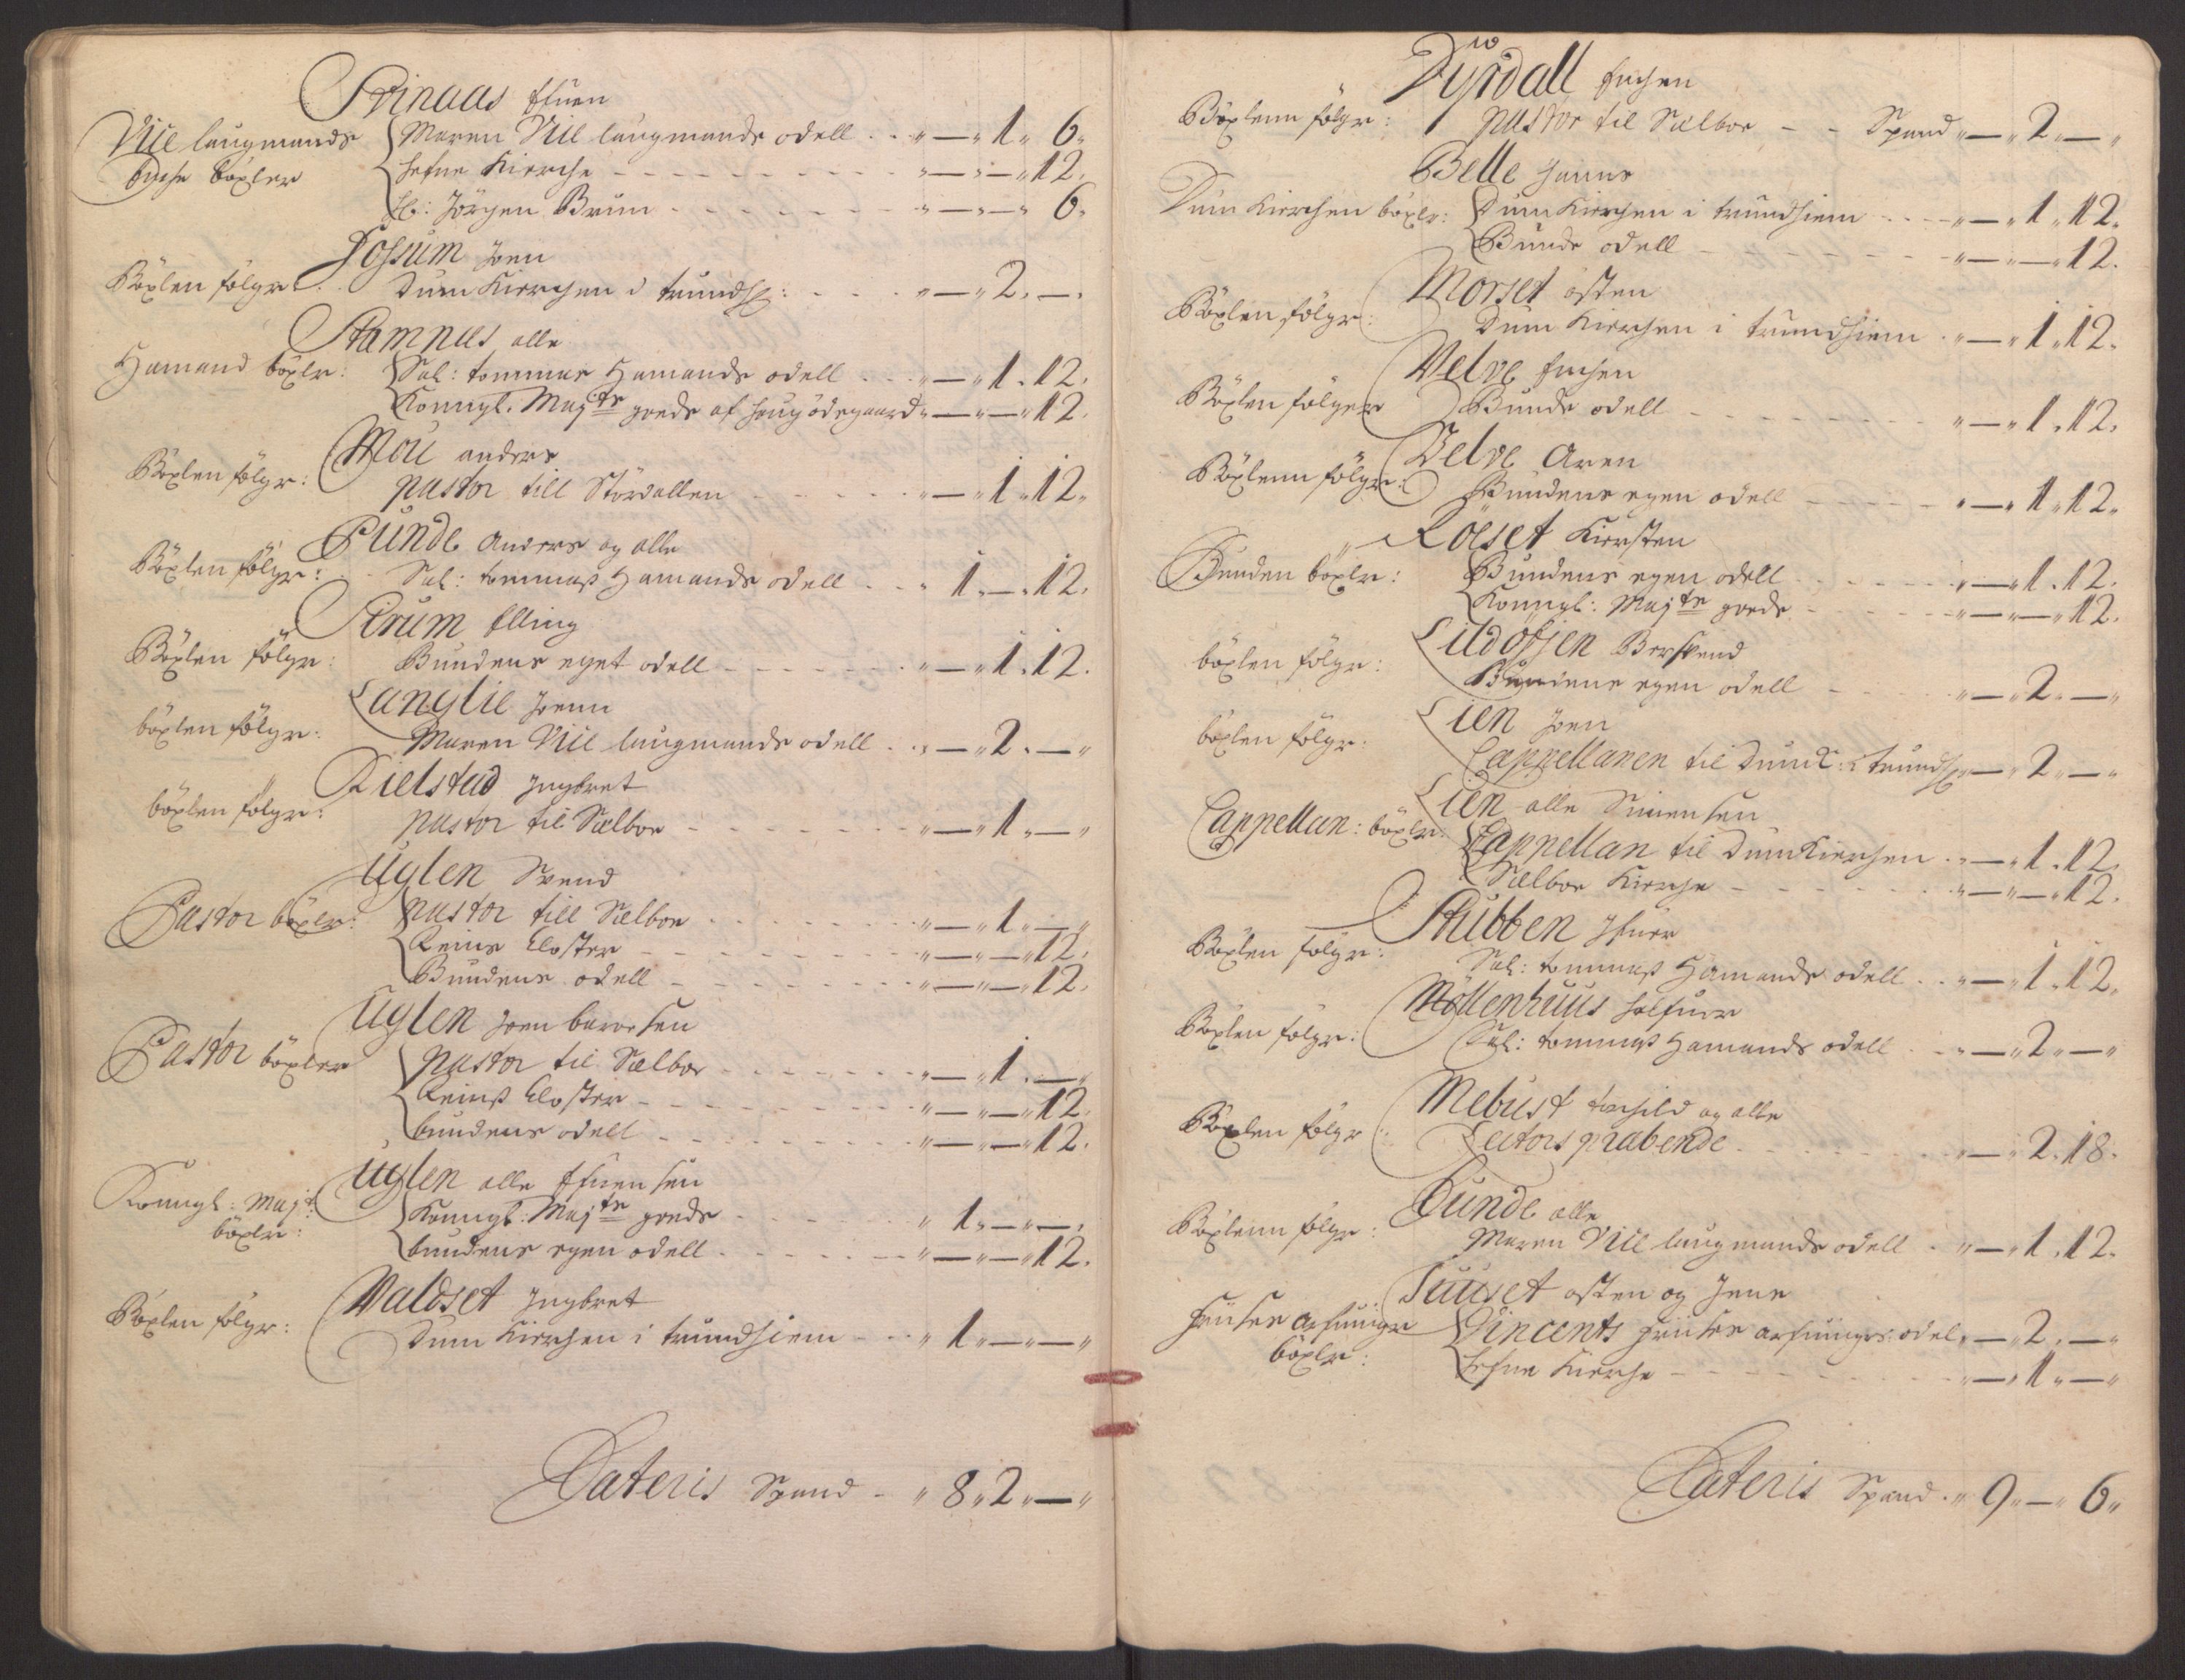 Svinaas Efuen
Niel laugmands
bygse böxler
Maren Niel laugmands odell . . „ — „ 1 „ 6 „
Hefne Kierche - - - „ — „ — „ 12.
Hr: Jörgen Brun - - - „ — „ — „ 6.
Fossum Joen
Böxlen fölger
Dum Kierchen i trundh: . . . „ — „ 2. —.
Stamnes olle
Hamand böxler:
Sal: tommas Hamands odell . . . „ — „ 1. 12.
Konngl. Mayts goeds af Haugödegaard „ — „ — „ 12.
Mou anders
Böxlen fölger:
pastor till Stördallen - - - „ — „ 1 „ 12.
Sunde Anders og olle
Böxlen fölger:
Sal: tommaß Hamands odell . . . „ 1. — . 12.
Sirum Elling
Böxlen fölger:
Bundens eget odell - - - „ — „ 1. 12.
Langlie Joenn
böxlen fölger:
Maren Niel laugmands odell . . „ — „ 2. — „
Kielstad Ingbret
böxlen fölger:
pastor til Sælboe - - - „ — „ 1. — „
Uglen Svend
Pastor böxler:
pastor till Sælboe - - - „ — „ 1. — „
Reins Closter - - - „ — „ — „ 12.
Bundens odell - - - „ — „ — „ 12.
Uglen Joen baarsen
Pastor böxler
pastor til Sælboe - - - „ — „ 1. — „
Reinß Closter - - - „ — „ — „ 12.
bundens odell - - - „ — „ — „ 12.
Uglen olle Efuensen
Konngl: Mayt:
böxler:
Konngl. Mayts goeds - - - „ 1. — „ — .
bundens egen odell - - - „ — „ — „ 12.
Valdset Ingbret
Böxlen fölger:
Dum Kierchen i trundhiem - - . „ 1. — „ — „
Lateris Spand - „ 8 „ 2 „ — „
10
Dyrdall
Böxlenn fölger:
pastor til Sælboe - - Spand „ — „ 2 „ — „
Belle Hanns
Dum Kierchen böxler:
Dum Kierchen i trundhiem - - - „ — „ 1 „ 12.
Bunde odell - - - „ — „ — „ 12.
Morset osten
Böxlen fölger:
Dum Kierchen i trundhiem . „ — „ 1 „ 12.
Velve
Böxlen fölger
Bunde odell - - - „ — „ 1 „ 12.
Velve Aren
Böxlenn fölger:
Bundens egen odell - - - „ — „ 1 „ 12.
Röeset Kiersten
Bunden böxler:
Bundens egen odell - - - „ — „ 1. 12.
Konngl: Mayts goeds - - - „ — „ — „ 12.
Lildofsen Berskend
böxlen fölger:
Bundens egen odell - - - „ — „ 2. — „
Lien Joen
böxlen fölger:
Cappellanen til DumK: i trundh „ — „ 2 „ — „
Lien olle Simensen
Cappellan: böxler:
Cappellan til Dum Kierchen . „ — „ 1. 12.
Sælboe Kierche - - - „ — „ — „ 12.
Stubben Ifuer
Böxlen fölger:
Sal: tommaß Hamands odell . . „ — „ 1. 12.
Möllenhuus halfuor
Böxlen fölger:
Sal: tommaß Hamands odell . . „ — „ 2 „ — „
Mebust torchild og olle
Böxlen fölger:
Lectors præbende - - - „ — „ 2. 18.
Sunde olle
Böxlenn fölger:
Maren Niel laugmands odell . „ — „ 1. 12.
Tuuset osten og Jens
Hansens arfuinger
böxler:
Vincents Hansens arfuingers odel „ — „ 2. — „
Hefne Kierche - - - „ — „ 1. — „
Lateris Spand. „ 9 „ — „ 6 „